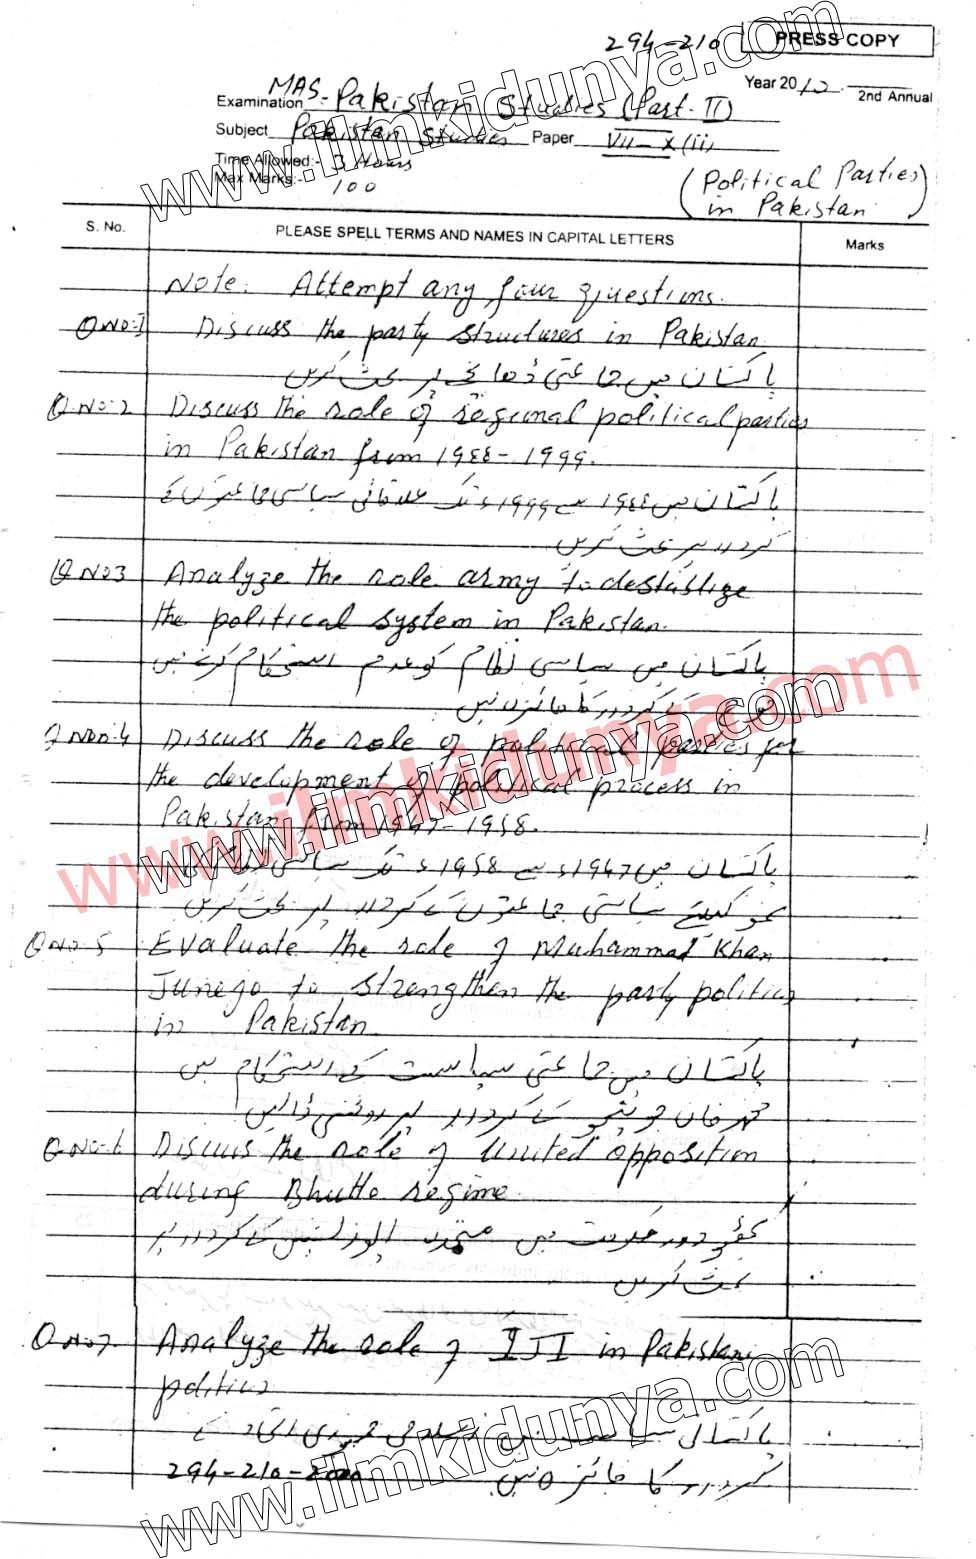 294-210 PRESS COPY
Year 2012 2nd Annual
Examination MAS-Pakistan Studies (Part-II)
Subject Pakistan Studies Paper VII-X(ii)
Time Allowed:- 3 Hours
Max Marks:- 100
(Political Parties
in Pakistan)
S. No. PLEASE SPELL TERMS AND NAMES IN CAPITAL LETTERS Marks
Note. Attempt any four questions.
Q No:1 Discuss the party structures in Pakistan
پاکستان میں جماعتی ڈھانچے پر بحث کریں
Q.No:2 Discuss the role of regional political parties
in Pakistan from 1988-1999.
پاکستان میں 1988 سے 1999ء تک علاقائی سیاسی جماعتوں کے
کردار پر بحث کریں
Q No3 Analyze the role army to destablize
the political system in Pakistan.
پاکستان میں سیاسی نظام کو عدم استحکام کرنے میں
فوج کے کردار کا جائزہ لیں
Q No:4 Discuss the role of political parties for
the development of political process in
Pakistan from 1947-1958.
پاکستان میں 1947ء سے 1958ء تک سیاسی
نمو کیلئے سیاسی جماعتوں کے کردار پر بحث کریں
Q No 5 Evaluate the role of Muhammad Khan
Junejo to strengthen the party politics
in Pakistan
پاکستان میں جماعتی سیاست کے استحکام میں
محمد خان جونیجو کے کردار پر روشنی ڈالیں
Q No-6 Discuss the role of United opposition
during Bhutto regime
بھٹو دور حکومت میں متحدہ اپوزیشن کے کردار پر
بحث کریں
Q No7. Analyze the role of IJI in Pakistani
politics
پاکستانی سیاست میں اسلامی جمہوری اتحاد کے
کردار کا جائزہ لیں
294-210-2000
www.ilmkidunya.com
www.ilmkidunya.com
www.ilmkidunya.com
www.ilmkidunya.com